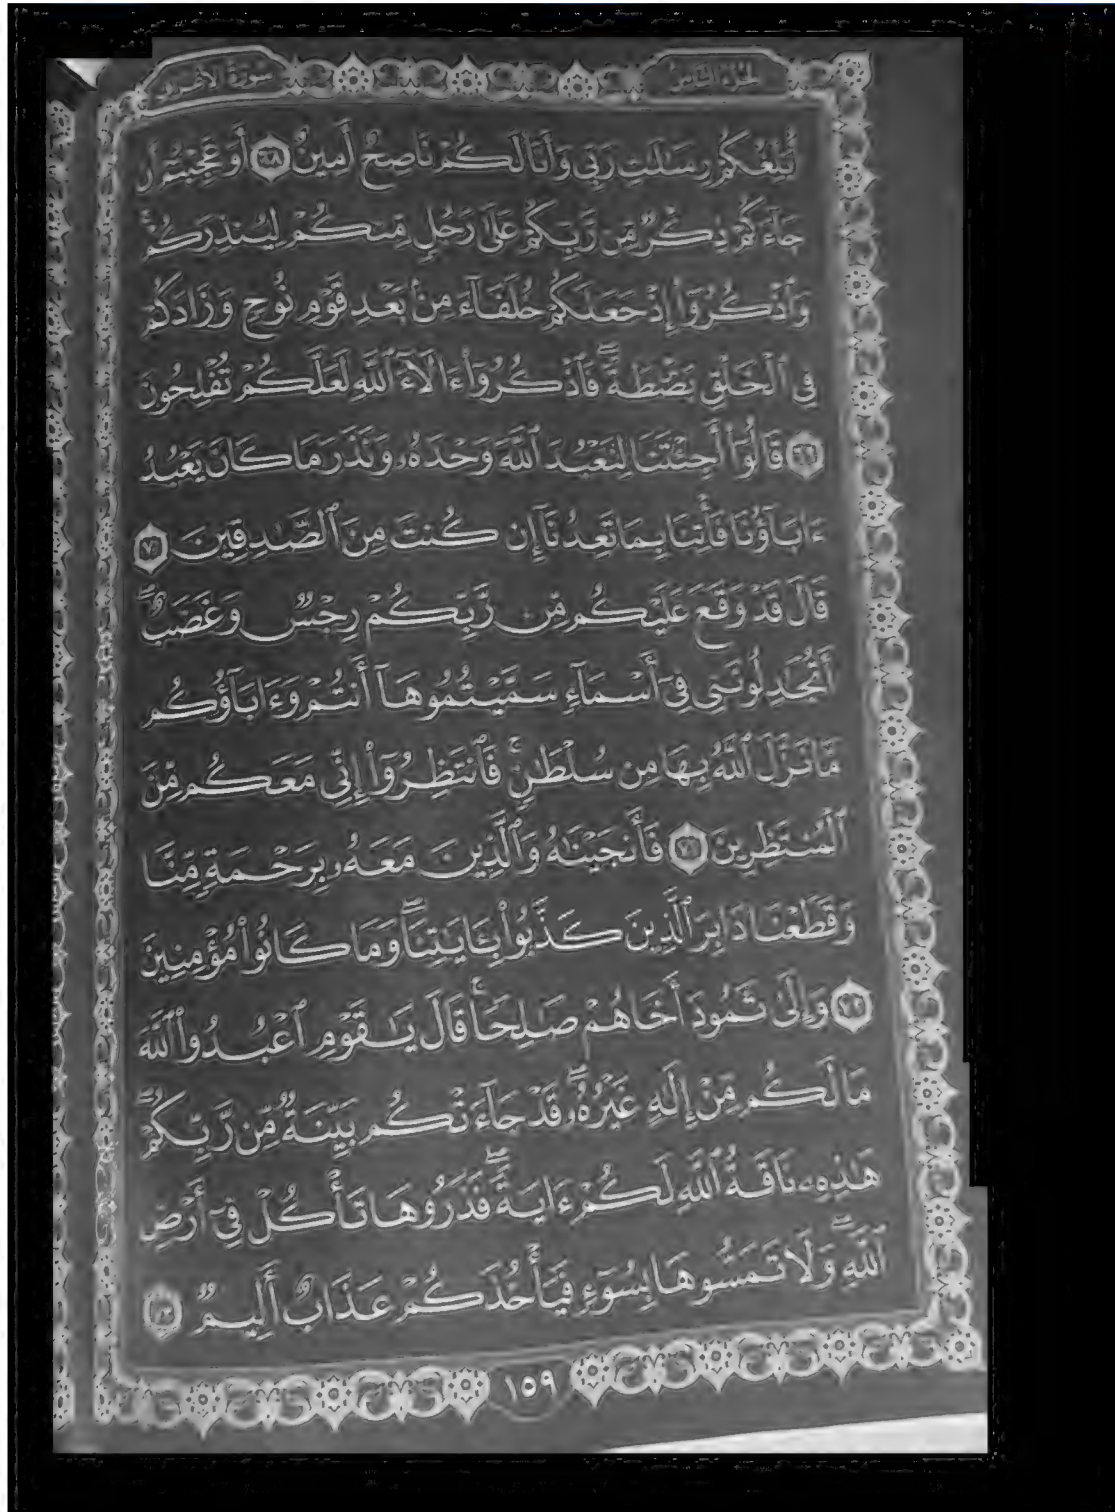 سُورَةُ الأَعْرَافِ
الجُزْءُ الثَّامِنُ
أُبَلِّغُكُمْ رِسَٰلَٰتِ رَبِّي وَأَنَا۠ لَكُمْ نَاصِحٌ أَمِينٌ ٦٨ أَوَعَجِبْتُمْ أَن
جَآءَكُمْ ذِكْرٌ مِّن رَّبِّكُمْ عَلَىٰ رَجُلٍ مِّنكُمْ لِيُنذِرَكُمْ ۚ
وَٱذْكُرُوٓا۟ إِذْ جَعَلَكُمْ خُلَفَآءَ مِنۢ بَعْدِ قَوْمِ نُوحٍ وَزَادَكُمْ
فِي ٱلْخَلْقِ بَصْۜطَةً ۖ فَٱذْكُرُوٓا۟ ءَالَآءَ ٱللَّهِ لَعَلَّكُمْ تُفْلِحُونَ
٦٩ قَالُوٓا۟ أَجِئْتَنَا لِنَعْبُدَ ٱللَّهَ وَحْدَهُۥ وَنَذَرَ مَا كَانَ يَعْبُدُ
ءَابَآؤُنَا فَأْتِنَا بِمَا تَعِدُنَآ إِن كُنتَ مِنَ ٱلصَّٰدِقِينَ ٧٠
قَالَ قَدْ وَقَعَ عَلَيْكُم مِّن رَّبِّكُمْ رِجْسٌ وَغَضَبٌ ۖ
أَتُجَٰدِلُونَنِي فِيٓ أَسْمَآءٍ سَمَّيْتُمُوهَآ أَنتُمْ وَءَابَآؤُكُم
مَّا نَزَّلَ ٱللَّهُ بِهَا مِن سُلْطَٰنٍ ۚ فَٱنتَظِرُوٓا۟ إِنِّي مَعَكُم مِّنَ
ٱلْمُنتَظِرِينَ ٧١ فَأَنجَيْنَٰهُ وَٱلَّذِينَ مَعَهُۥ بِرَحْمَةٍ مِّنَّا
وَقَطَعْنَا دَابِرَ ٱلَّذِينَ كَذَّبُوا۟ بِـَٔايَٰتِنَا ۖ وَمَا كَانُوا۟ مُؤْمِنِينَ
٧٢ وَإِلَىٰ ثَمُودَ أَخَاهُمْ صَٰلِحًا ۚ قَالَ يَٰقَوْمِ ٱعْبُدُوا۟ ٱللَّهَ
مَا لَكُم مِّنْ إِلَٰهٍ غَيْرُهُۥ ۖ قَدْ جَآءَتْكُم بَيِّنَةٌ مِّن رَّبِّكُمْ ۖ
هَٰذِهِۦ نَاقَةُ ٱللَّهِ لَكُمْ ءَايَةً ۖ فَذَرُوهَا تَأْكُلْ فِيٓ أَرْضِ
ٱللَّهِ ۖ وَلَا تَمَسُّوهَا بِسُوٓءٍ فَيَأْخُذَكُمْ عَذَابٌ أَلِيمٌ ٧٣
١٥٩